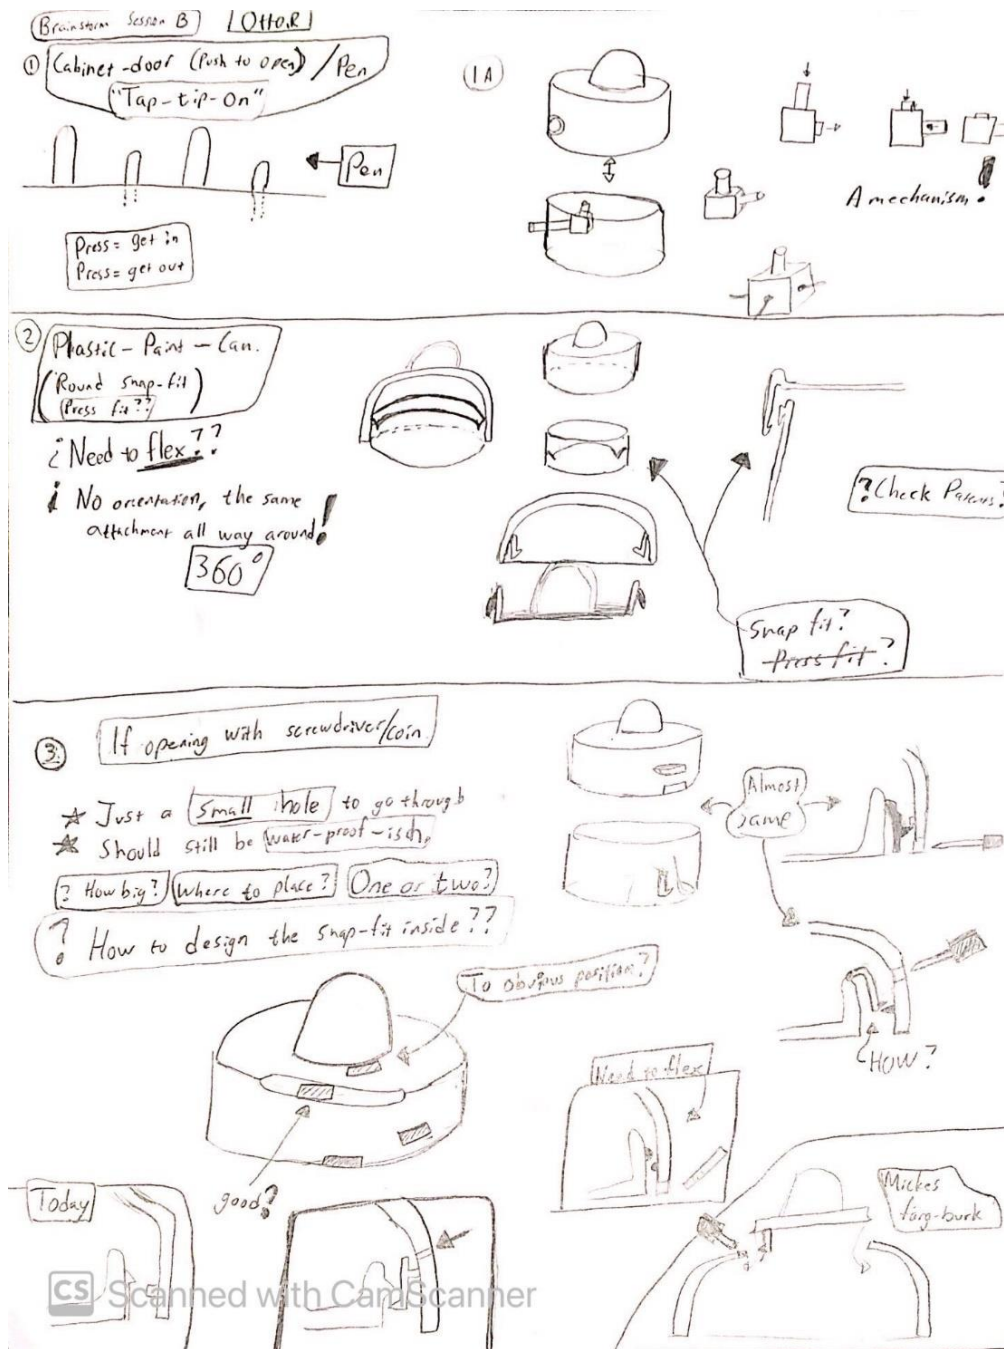 Brainstorm Session B
Otto.R
① Cabinet-door (Push to open) / Pen
"Tap-tip-On"
Pen
Press = get in
Press = get out
1A
A mechanism!
② Plastic-Paint-Can.
(Round snap-fit)
Press fit??
¿ Need to flex??
¡ No orientation, the same
attachment all way around!
360°
?Check Patents?
Snap fit?
Press fit?
③ If opening with screwdriver/coin
Just a small hole to go through
Should still be water-proof-isch.
? How big?
Where to place?
One or two?
? How to design the snap-fit inside??
Almost
same
To obvius position?
HOW?
Need to flex
good?
Today
Mickes
färg-burk
CS Scanned with CamScanner